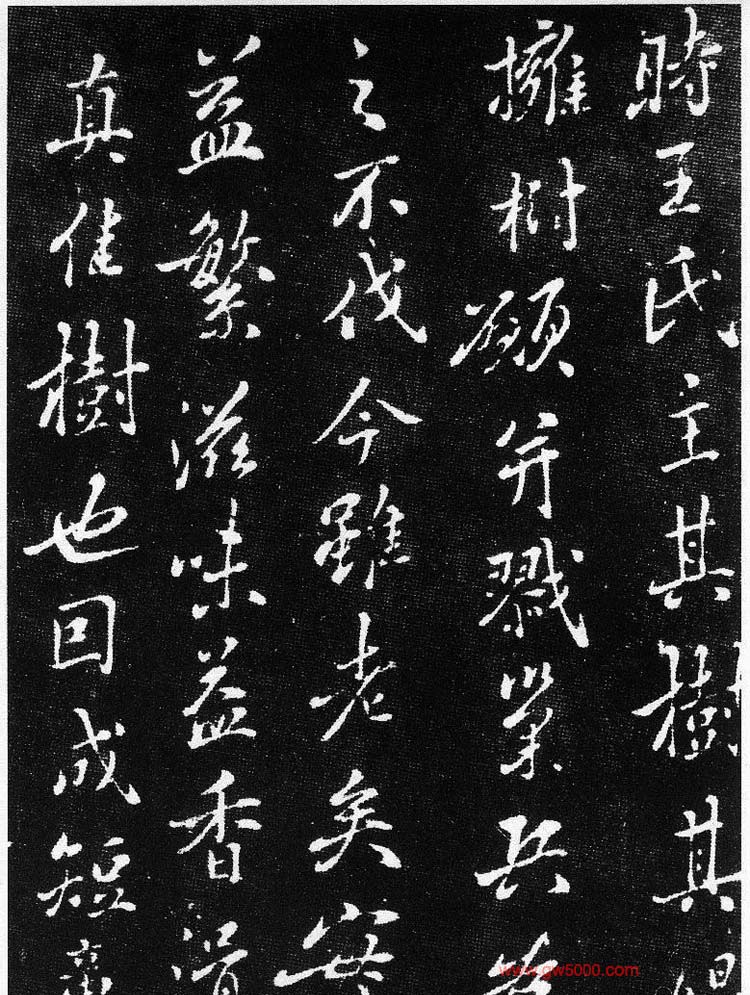 時王氏主其樹其
擁樹願并戮巢兵
之不伐今雖老矣實
益繁滋味益香滑
真佳樹也因成短
www.gw5000.com